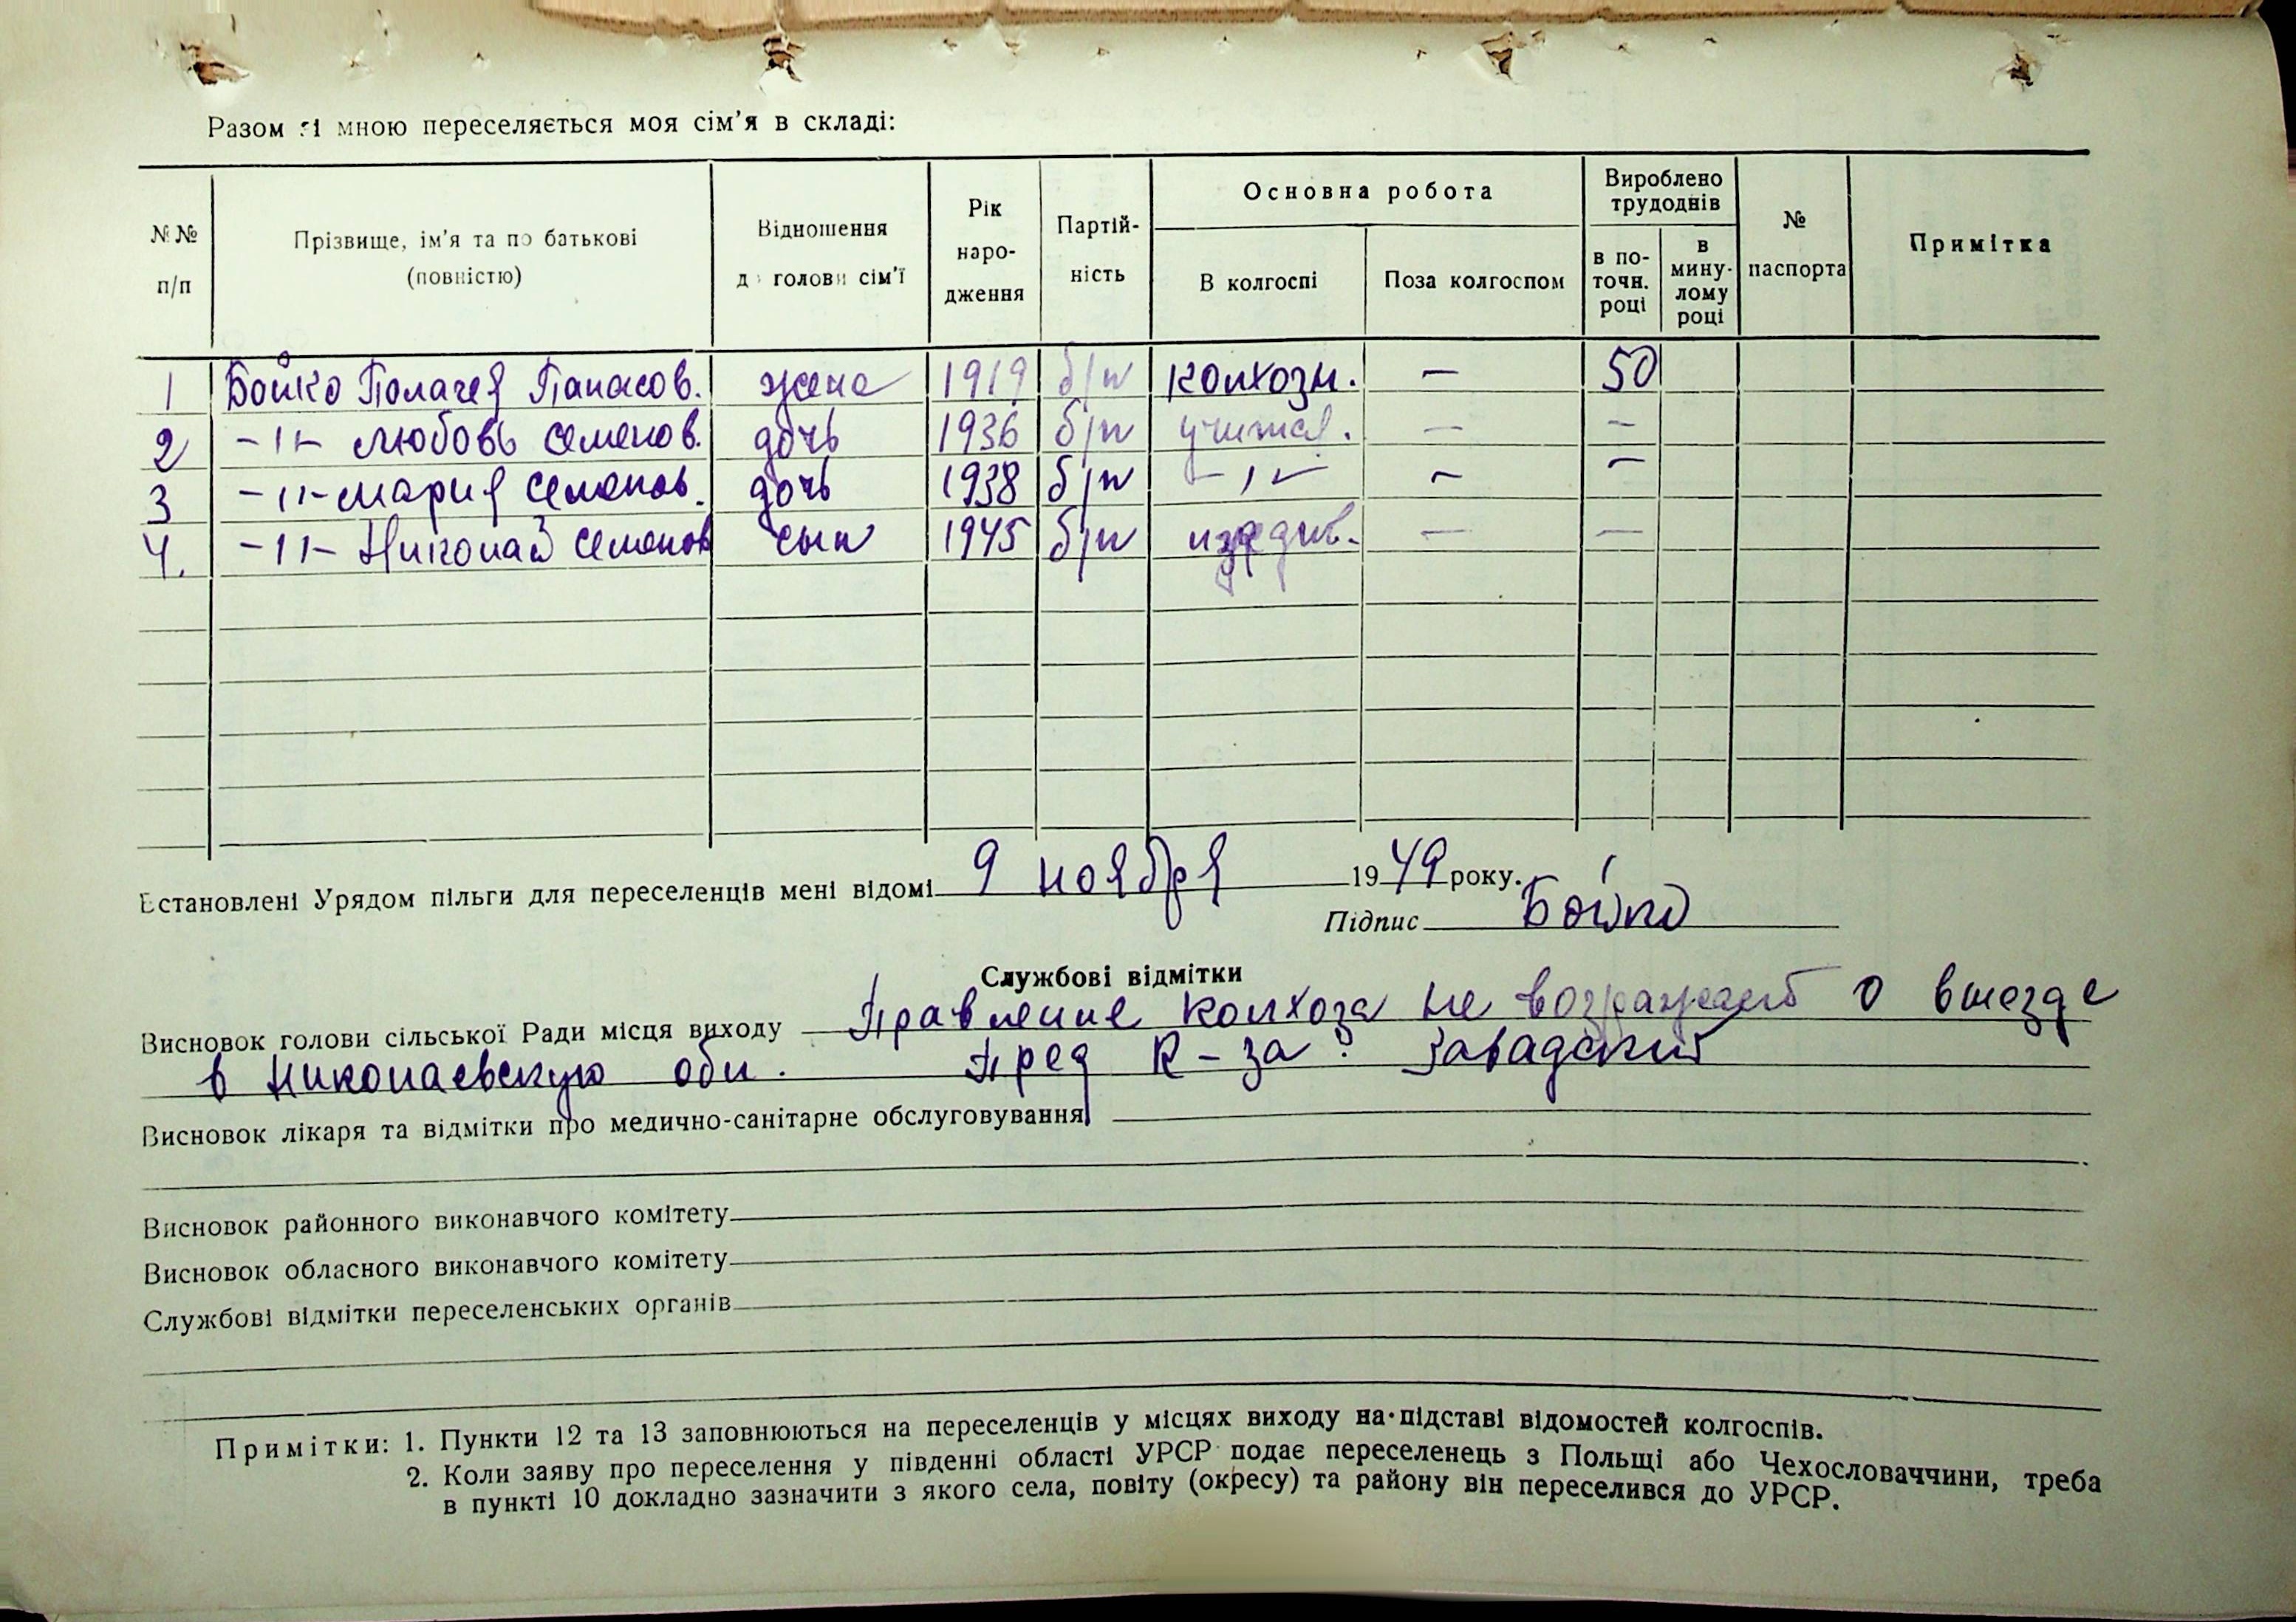 Разом зі мною переселяється моя сім’я в складі:
№№ п/п | Прізвище, ім’я та по батькові (повністю) | Відношення до голови сім’ї | Рік народження | Партійність | Основна робота | Вироблено трудоднів | № паспорта | Примітка
В колгоспі | Поза колгоспом | в поточн. році | в минулому році
1 Бойко Палагея Панасов. жена 1919 б/п колхозн. — 50
2 -//- Любовь Семенов. дочь 1936 б/п учится. — —
3 -//- Мария Семенов. дочь 1938 б/п -//- — —
4. -//- Николай Семенов сын 1945 б/п — —
Встановлені Урядом пільги для переселенців мені відомі 9 ноября 1949 року.
Підпис Бойко
Службові відмітки
Висновок голови сільської Ради місця виходу Правление колхоза не возражает о выезде
в Николаевскую обл. Пред к-за: Завадский
Висновок лікаря та відмітки про медично-санітарне обслуговування
Висновок районного виконавчого комітету
Висновок обласного виконавчого комітету
Службові відмітки переселенських органів
Примітки: 1. Пункти 12 та 13 заповнюються на переселенців у місцях виходу на підставі відомостей колгоспів.
2. Коли заяву про переселення у південні області УРСР подає переселенець з Польщі або Чехословаччини, треба
в пункті 10 докладно зазначити з якого села, повіту (окресу) та району він переселився до УРСР.